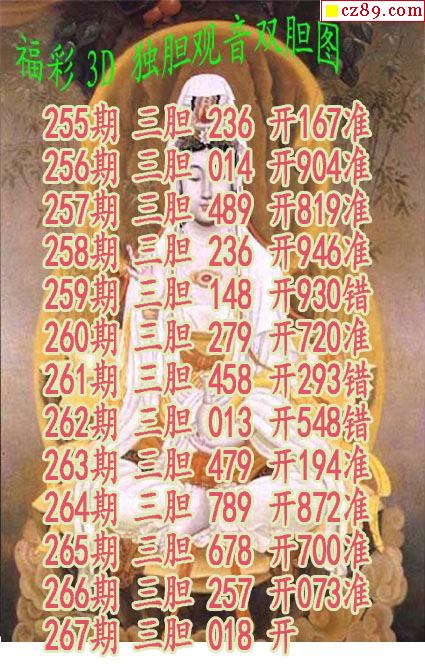 cz89.com
福彩 3D 独胆观音双胆图
255期 三胆 236 开167准
256期 三胆 014 开904准
257期 三胆 489 开819准
258期 三胆 236 开946准
259期 三胆 148 开930错
260期 三胆 279 开720准
261期 三胆 458 开293错
262期 三胆 013 开548错
263期 三胆 479 开194准
264期 三胆 789 开872准
265期 三胆 678 开700准
266期 三胆 257 开073准
267期 三胆 018 开